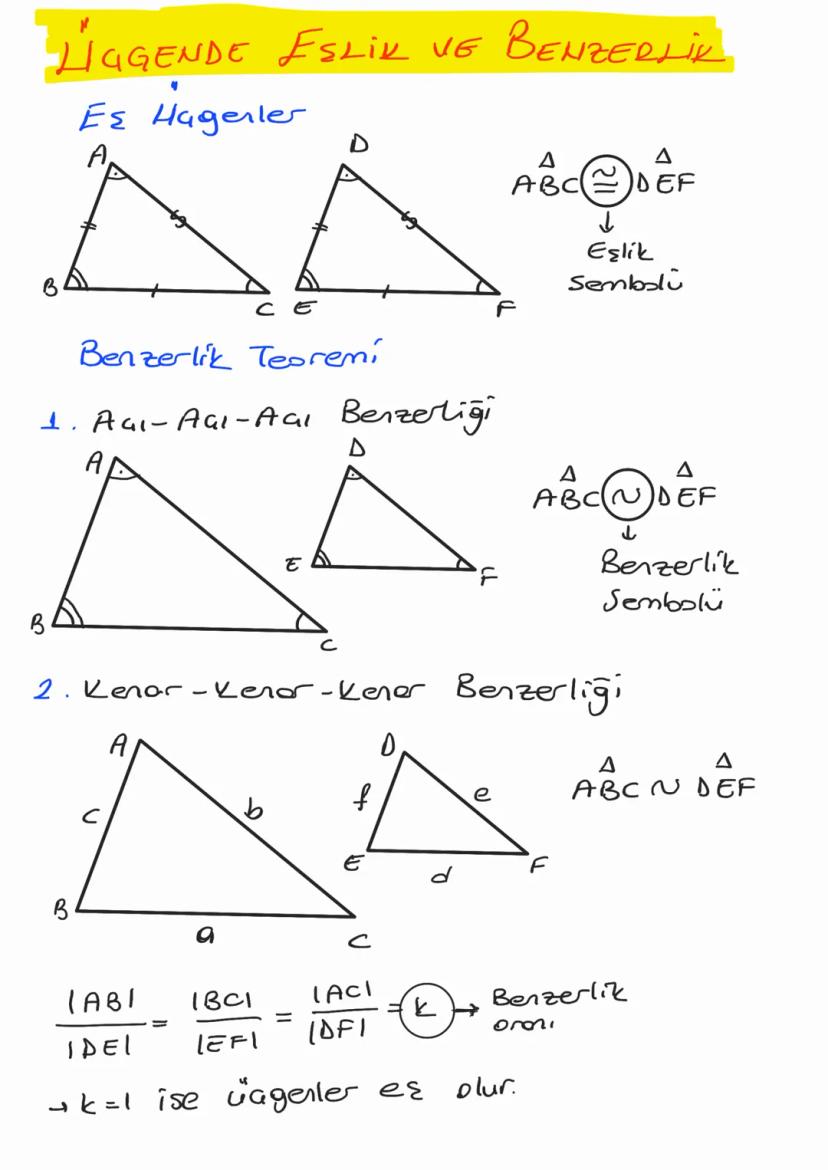 ÜÇGENDE EŞLİK VE BENZERLİK
Eş Üçgenler
A
D
ABC ≅ DEF
Eşlik
Sembolü
B
C
E
F
Benzerlik Teoremi
1. Açı - Açı - Açı Benzerliği
A
D
ABC ~ DEF
E
F
Benzerlik
Sembolü
B
C
2. Kenar - Kenar - Kenar Benzerliği
A
D
ABC ~ DEF
c
b
f
e
E
F
d
B
a
C
|AB|/|DE| = |BC|/|EF| = |AC|/|DF| = k → Benzerlik
oranı
→ k=1 ise üçgenler eş olur.